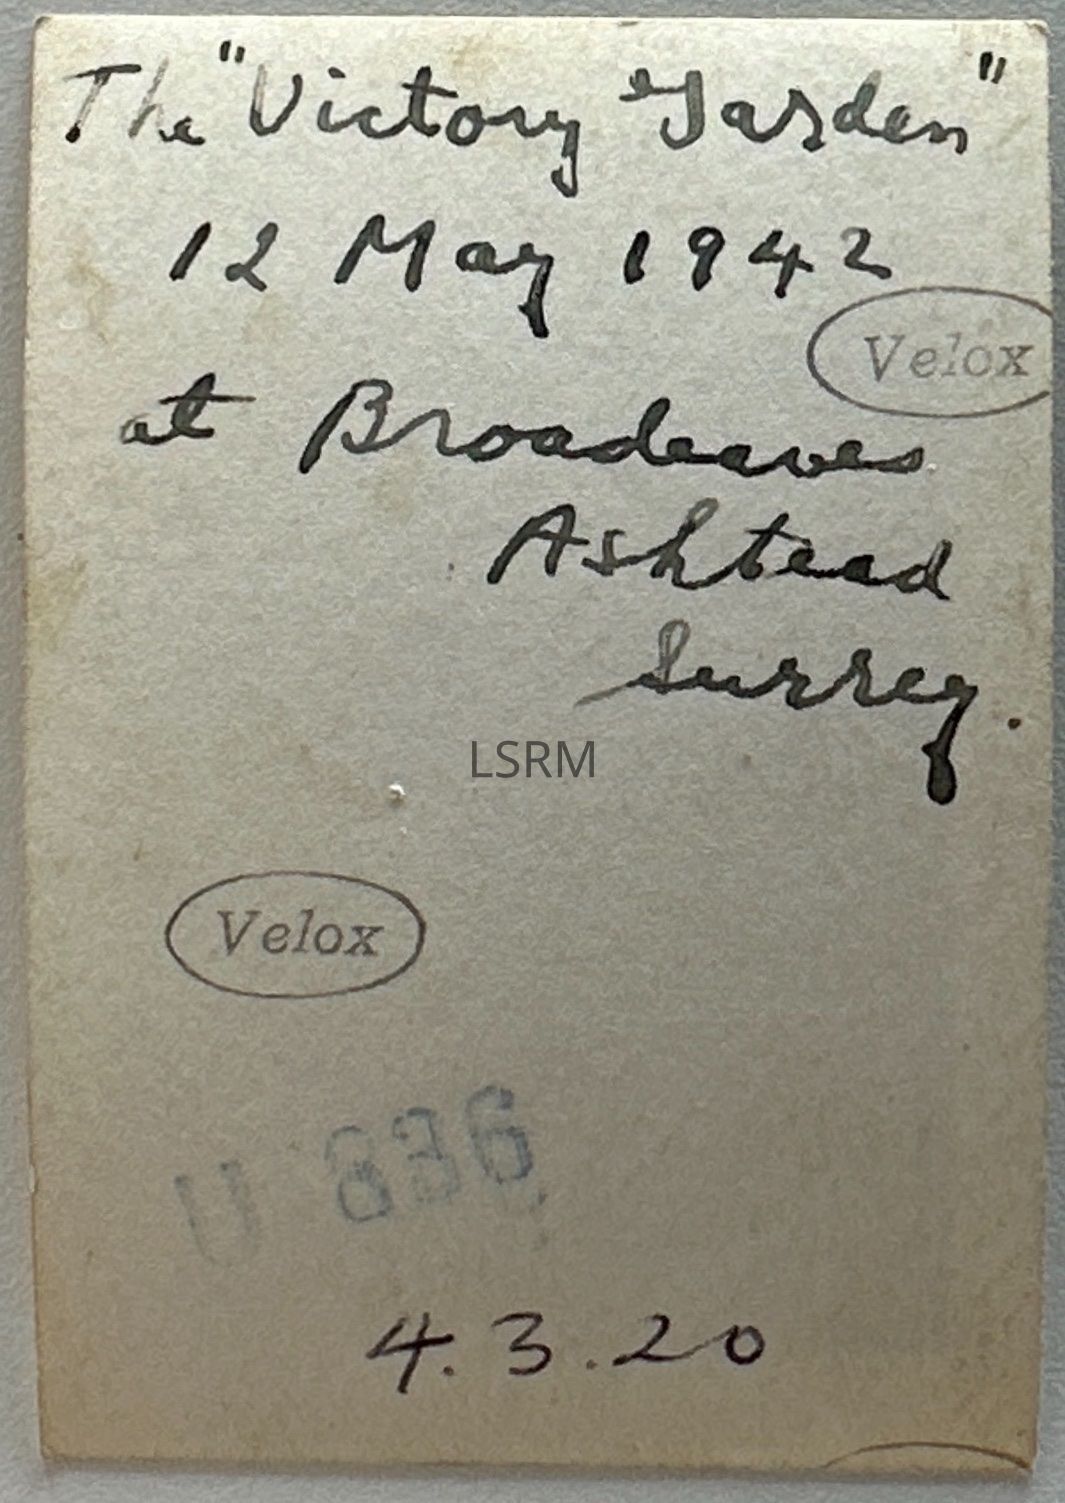 The "Victory Garden"
12 May 1942
Velox
at Broadeaves
Ashtead
Surrey.
LSRM
Velox
4.3.20